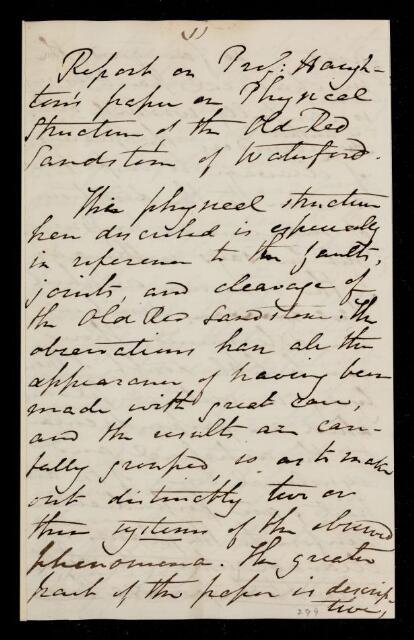 1)
Report on Prof: Haugh-
ton's paper on Physical
Structure of the Old Red
Sandstone of Waterford.
This physical structure
here discribed is especially
in reference to the faults,
joints and cleavage of
the Old Red Sandstone. The
observations have all the
appearance of having been
made with great care,
and the results are care-
fully grouped, so as to make
out distinctly two or
three systems of the observed
phenomena. The greater
part of the paper is descrip-
tive,
299